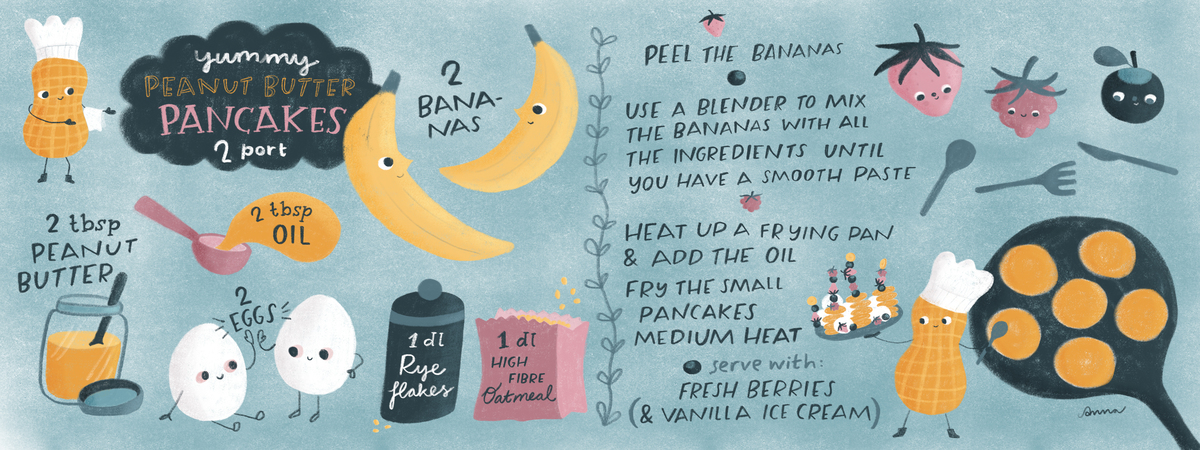 yummy
PEANUT BUTTER
PANCAKES
2 port
2
BANA-
NAS
2 tbsp
OIL
2 tbsp
PEANUT
BUTTER
2
EGGS
1 dl
Rye
flakes
1 dl
HIGH
FIBRE
Oatmeal
PEEL THE BANANAS
USE A BLENDER TO MIX
THE BANANAS WITH ALL
THE INGREDIENTS UNTIL
YOU HAVE A SMOOTH PASTE
HEAT UP A FRYING PAN
& ADD THE OIL
FRY THE SMALL
PANCAKES
MEDIUM HEAT
serve with:
FRESH BERRIES
(& VANILLA ICE CREAM)
Anna